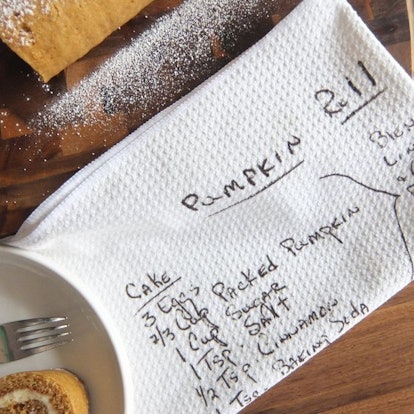 Pumpkin Roll
Cake
3 Eggs
2/3 Cup Packed Pumpkin
1 Cup Sugar
1 Tsp. Salt
1/2 Tsp Cinnamon
1 Tsp. Baking Soda